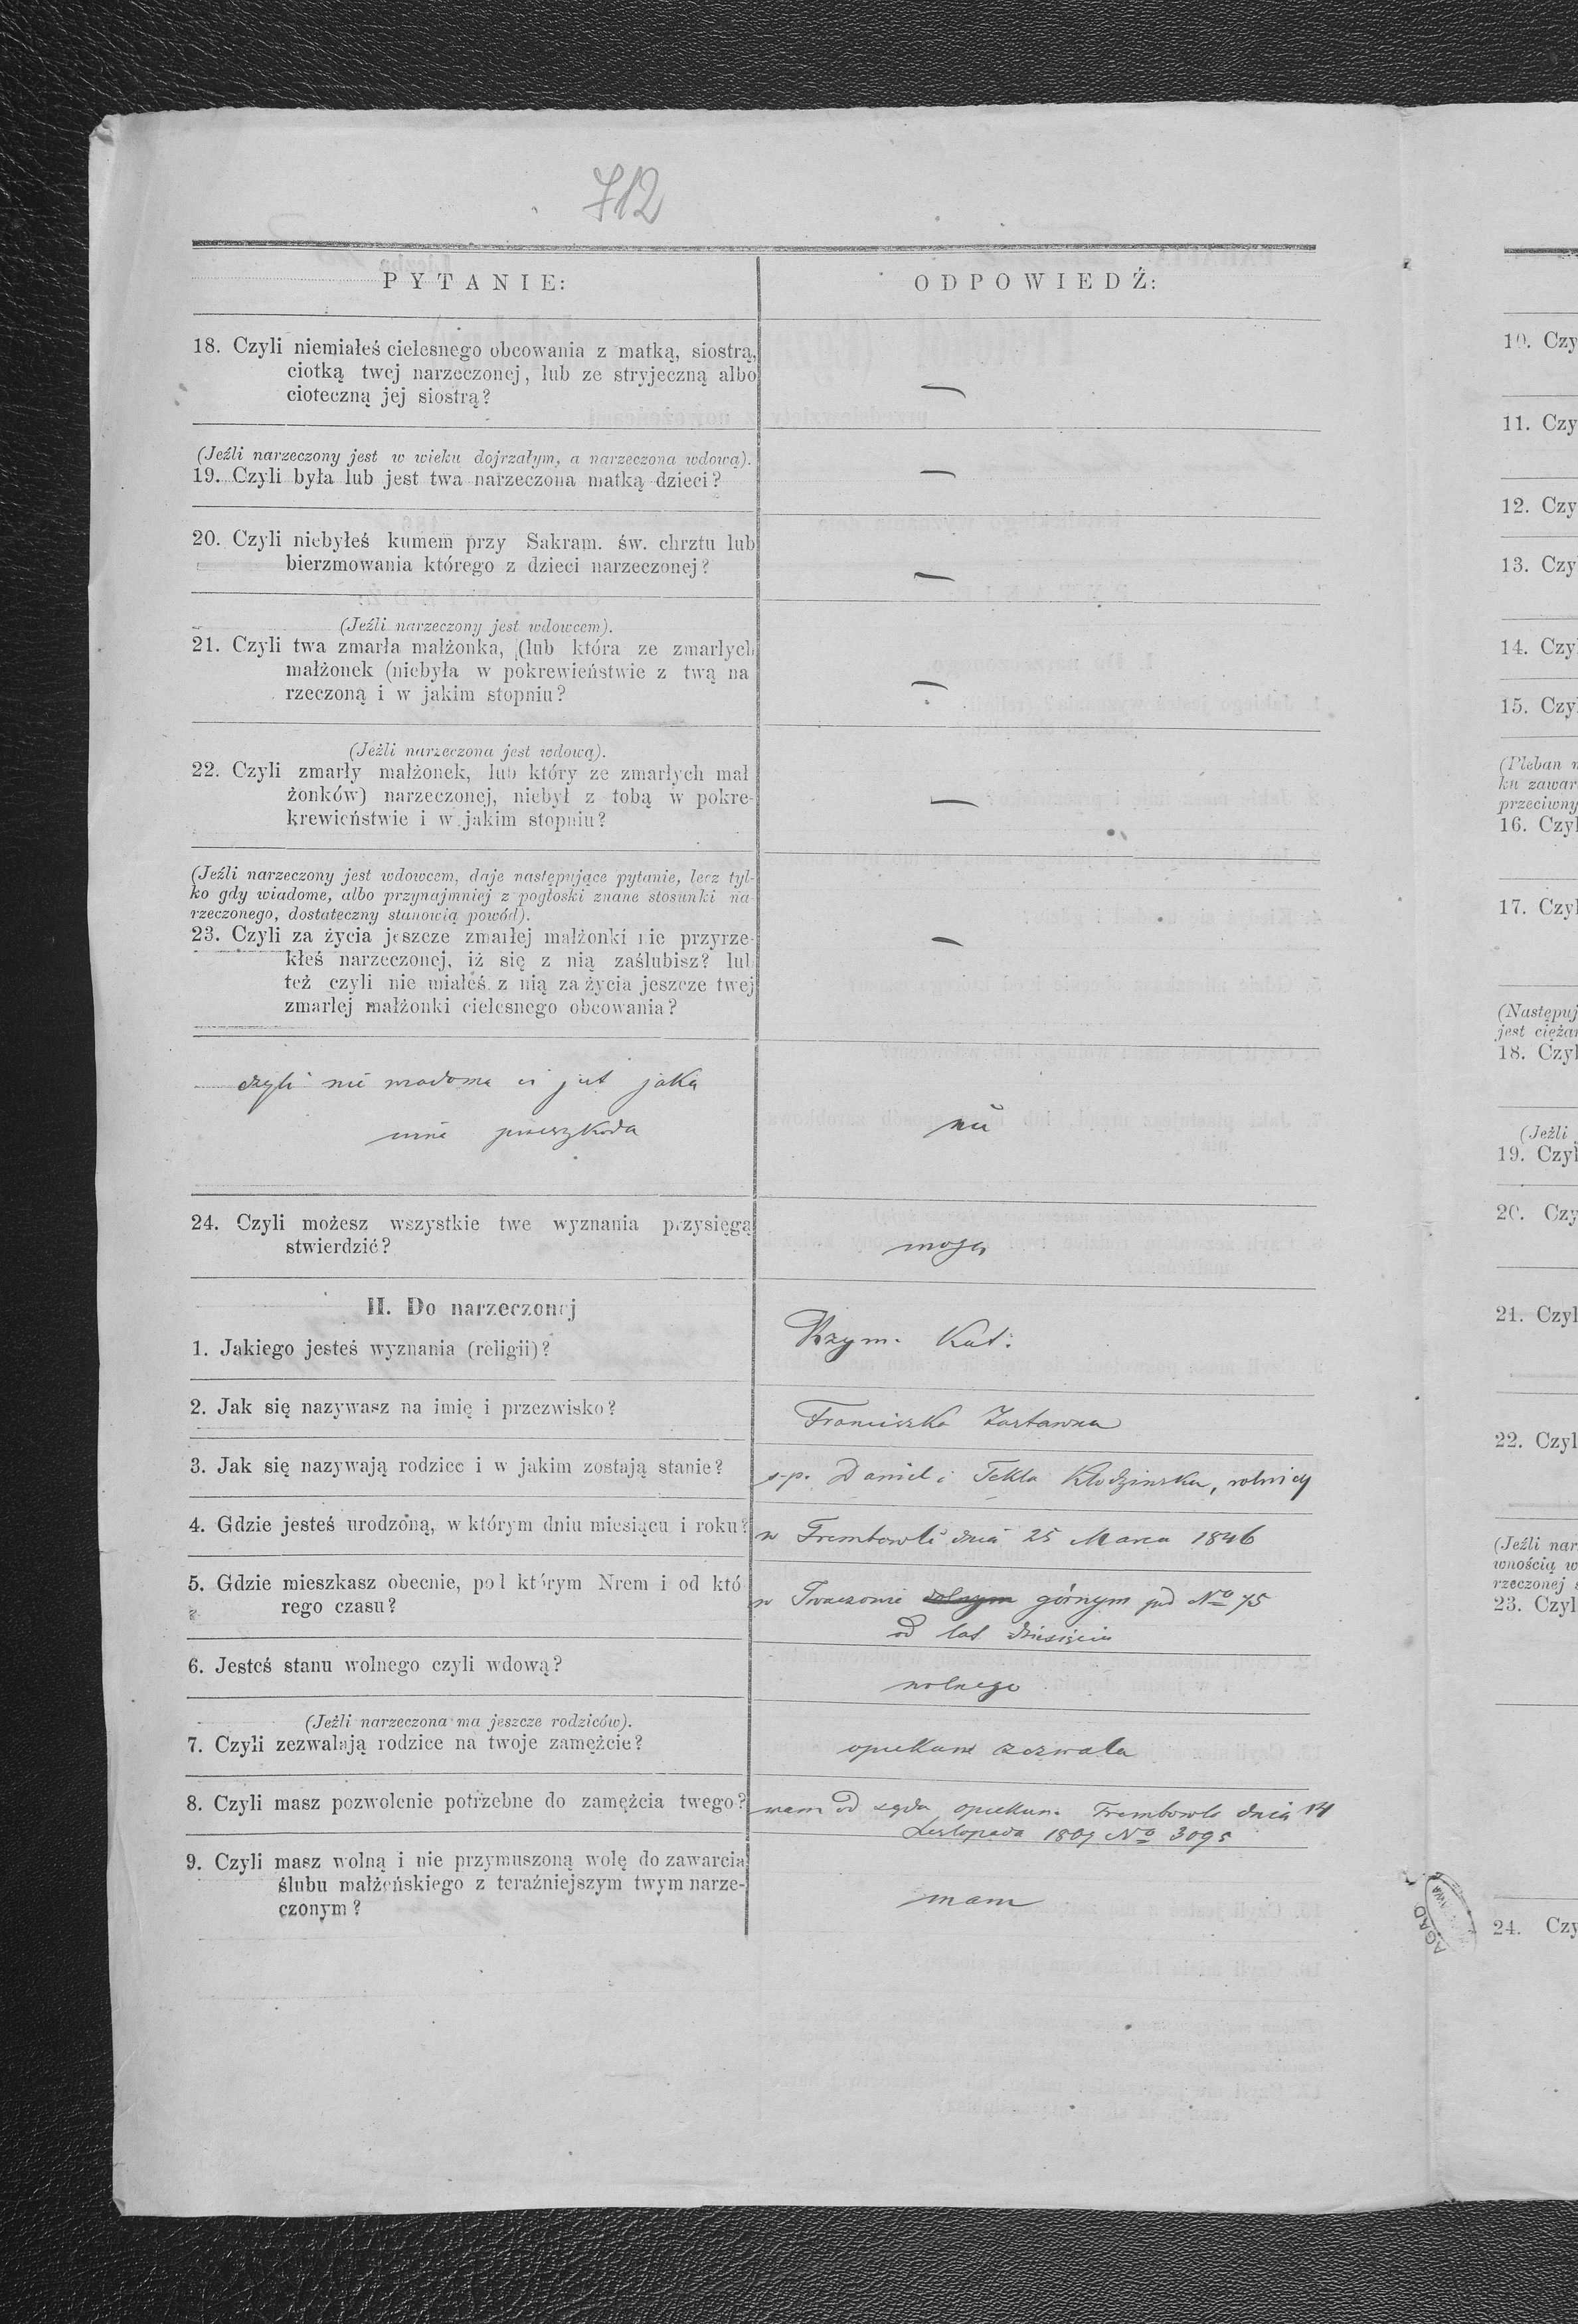 712
PYTANIE:
ODPOWIEDŹ:
18. Czyli niemiałeś cielesnego obcowania z matką, siostrą,
ciotką twej narzeczonej, lub ze stryjeczną albo
cioteczną jej siostrą?
—
(Jeźli narzeczony jest w wieku dojrzałym, a narzeczona wdową).
19. Czyli była lub jest twa narzeczona matką dzieci?
—
20. Czyli niebyłeś kumem przy Sakram. św. chrztu lub
bierzmowania którego z dzieci narzeczonej?
—
(Jeźli narzeczony jest wdowcem).
21. Czyli twa zmarła małżonka, (lub która ze zmarłych
małżonek (niebyła w pokrewieństwie z twą na
rzeczoną i w jakim stopniu?
—
(Jeźli narzeczona jest wdową).
22. Czyli zmarły małżonek, lub który ze zmarłych mał
żonków) narzeczonej, niebył z tobą w pokre-
krewieństwie i w jakim stopniu?
—
(Jeźli narzeczony jest wdowcem, daje następujące pytanie, lecz tyl-
ko gdy wiadome, albo przynajmniej z pogłoski znane stosunki na-
rzeczonego, dostateczny stanowią powód).
23. Czyli za życia jeszcze zmarłej małżonki nie przyrze-
kłeś narzeczonej, iż się z nią zaślubisz? lub
też czyli nie miałeś z nią za życia jeszcze twej
zmarłej małżonki cielesnego obcowania?
—
czyli nie wiadoma ci jest jaka
inna przeszkoda
nie
24. Czyli możesz wszystkie twe wyznania przysięgą
stwierdzić?
mogę
II. Do narzeczonej
1. Jakiego jesteś wyznania (religii)?
Rzym. Kat:
2. Jak się nazywasz na imię i przezwisko?
Franciszka Zastawna
3. Jak się nazywają rodzice i w jakim zostają stanie?
s.p. Daniel i Tekla Kłodzinska, rolnicy
4. Gdzie jesteś urodzoną, w którym dniu miesiącu i roku?
w Trembowli dnia 25 Marca 1846
5. Gdzie mieszkasz obecnie, pod którym Nrem i od któ
rego czasu?
w dolnym górnym pod No 75
od lat dziesięciu
6. Jesteś stanu wolnego czyli wdową?
wolnego
(Jeźli narzeczona ma jeszcze rodziców).
7. Czyli zezwalają rodzice na twoje zamężcie?
opiekun zezwala
8. Czyli masz pozwolenie potrzebne do zamężcia twego?
mam od sądu opiekun. Trembowla dnia 14
Listopada No 3095
9. Czyli masz wolną i nie przymuszoną wolę do zawarcia
ślubu małżeńskiego z teraźniejszym twym narze-
czonym?
mam
10. Czy
11. Czy
12. Czy
13. Czy
14. Czy
15. Czy
(Pleban
ku zawar
przeciwny
16. Czyl
17. Czyl
(Następuj
jest cięża
18. Czyl
(Jeźli
19. Czyl
20. Czy
21. Czyl
22. Czyl
(Jeźli nar
wnością w
rzeczonej
23. Czyl
24. Czy
AGAD